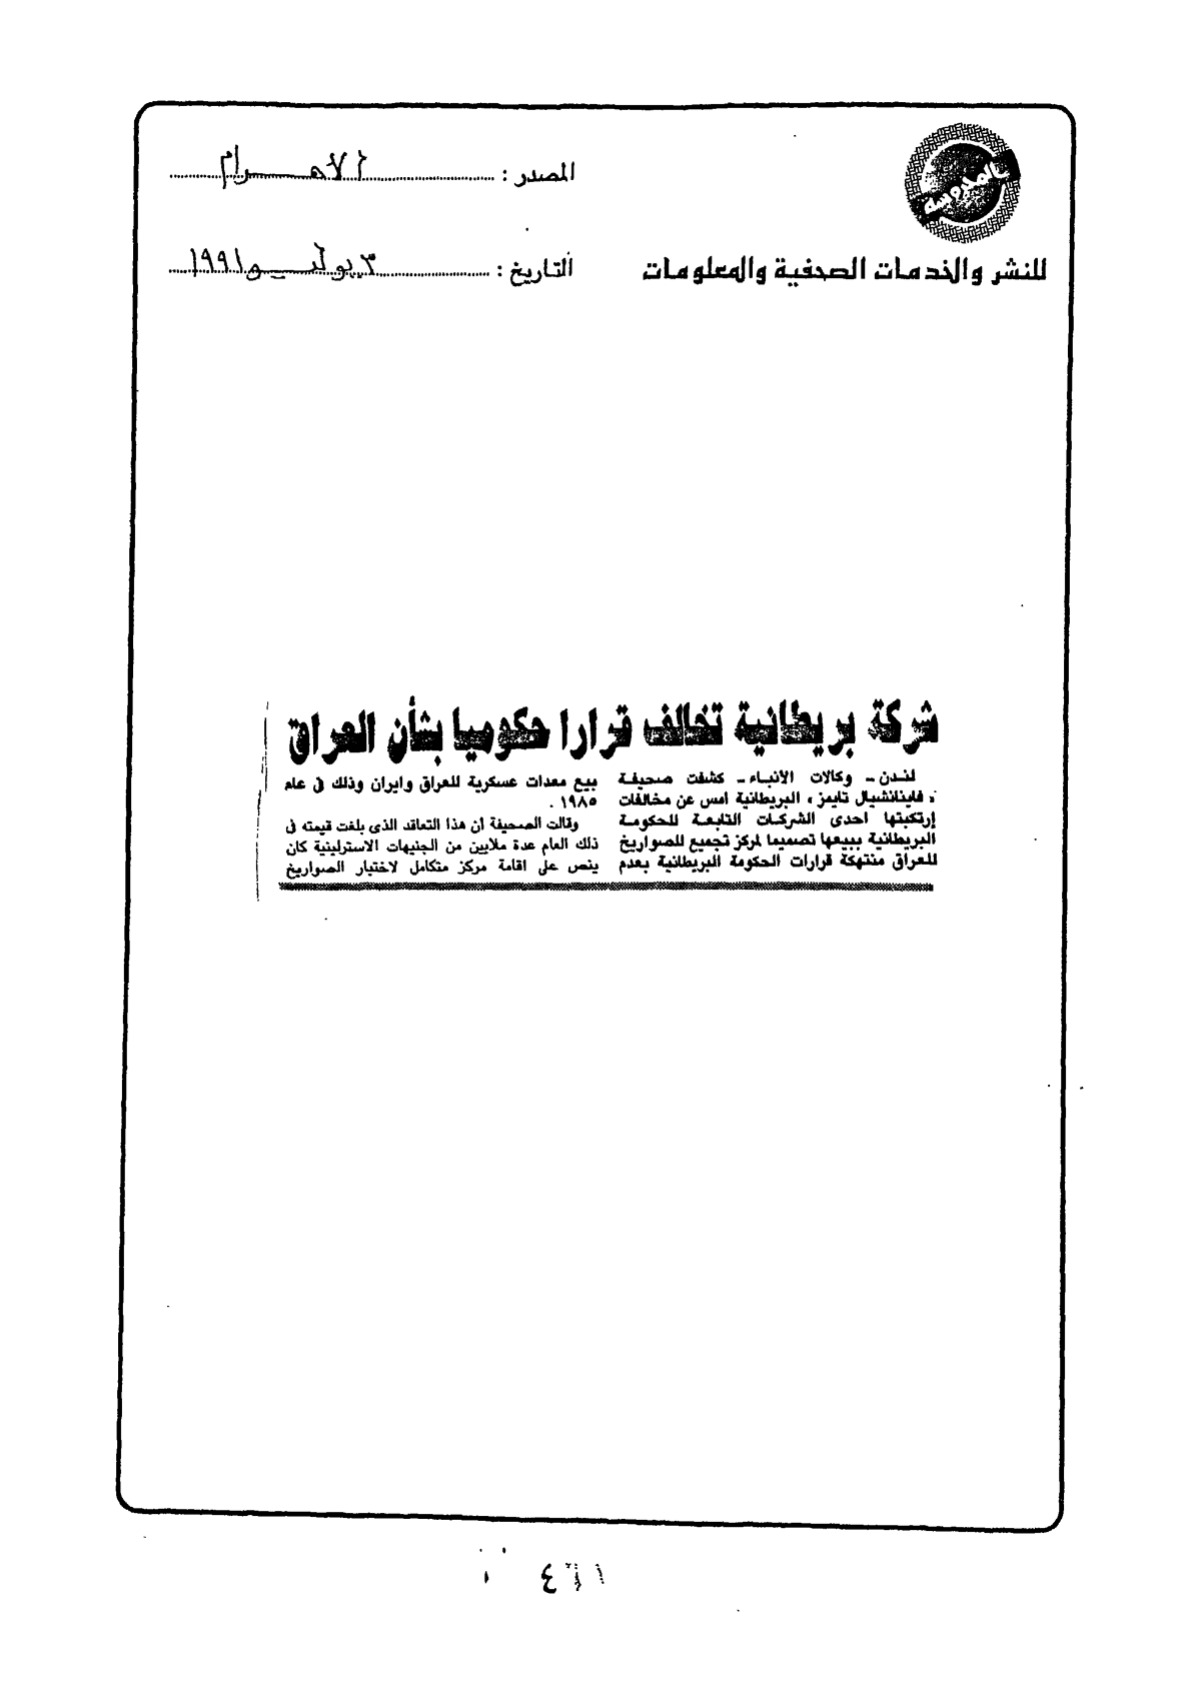 المصدر : الأهرام
للنشر والخدمات الصحفية والمعلومات
التاريخ : ٣ يوليو ١٩٩١
شركة بريطانية تخالف قرارا حكوميا بشأن العراق
لندن - وكالات الأنباء - كشفت صحيفة
« فاينانشيال تايمز » البريطانية امس عن مخالفات
إرتكبتها احدى الشركات التابعة للحكومة
البريطانية ببيعها تصميما لمركز تجميع للصواريخ
للعراق منتهكة قرارات الحكومة البريطانية بعدم
بيع معدات عسكرية للعراق وايران وذلك فى عام
١٩٨٥ .
وقالت الصحيفة ان هذا التعاقد الذى بلغت قيمته فى
ذلك العام عدة ملايين من الجنيهات الاسترلينية كان
ينص على اقامة مركز متكامل لاختبار الصواريخ